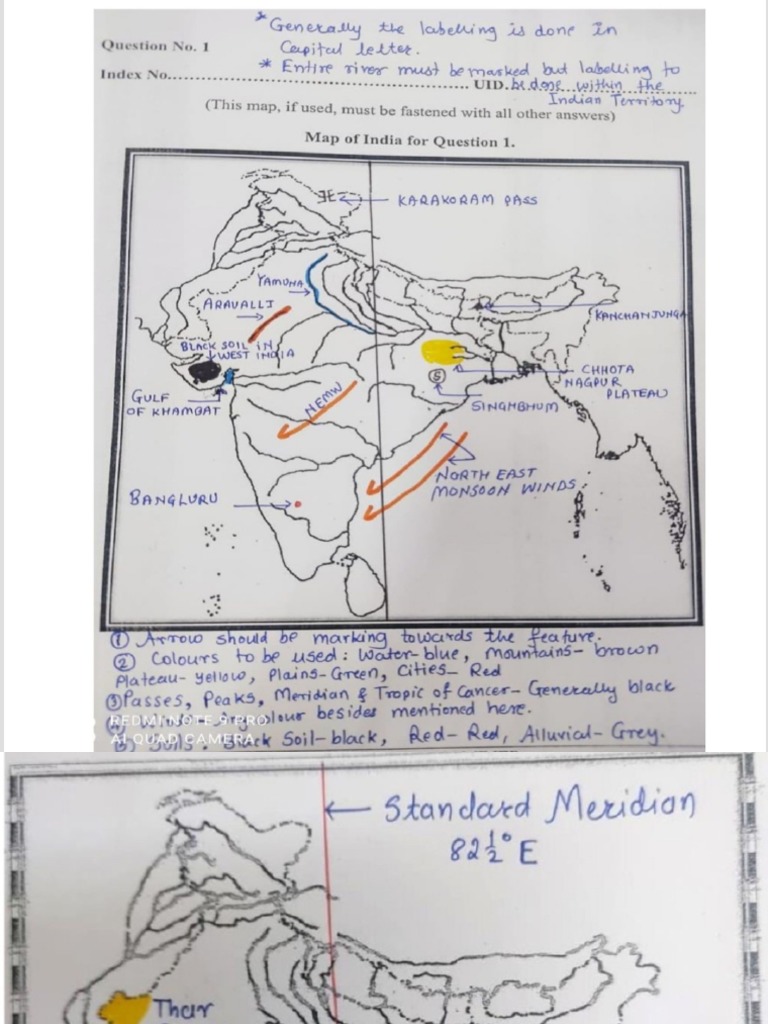 * Generally the labelling is done in
Question No. 1
Capital letter.
* Entire river must be marked but labelling to
Index No. UID. be done within the
Indian Territory.
(This map, if used, must be fastened with all other answers)
Map of India for Question 1.
KARAKORAM PASS
YAMUNA
ARAVALLI
KANCHANJUNGA
BLACK SOIL IN
WEST INDIA
CHHOTA
NAGPUR
PLATEAU
GULF
OF KHAMBAT
NEMW
S
SINGHBHUM
NORTH EAST
MONSOON WINDS
BANGLURU
① Arrow should be marking towards the feature.
② Colours to be used: Water-blue, Mountains- brown
Plateau- yellow, Plains-Green, Cities- Red
③ Passes, Peaks, Meridian & Tropic of Cancer- Generally black
colour besides mentioned here.
REDMI NOTE 9 PRO
AI QUAD CAMERA
Soils: Black Soil-black, Red-Red, Alluvial-Grey.
Standard Meridion
82½° E
Thar